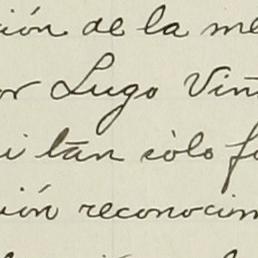 ión de la me
or Lugo Viñ
i tan sòlo fo
ión reconocim